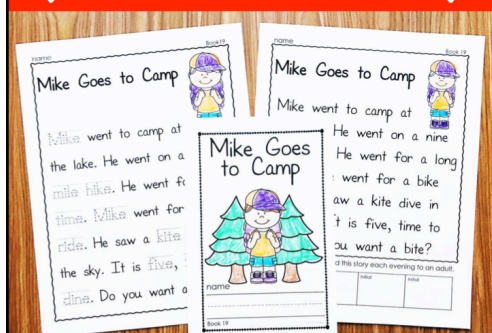 name
Book 19
Mike Goes to Camp
Mike went to camp at
the lake. He went on a
mile hike. He went
time. Mike went for
ride. He saw a kite
the sky. It is five,
dine. Do you want a
Mike Goes
to Camp
name
Book 19
name
Book 19
Mike Goes to Camp
Mike went to camp at
He went on a nine
He went for a long
went for a bike
aw a kite dive in
t is five, time to
ou want a bite?
d this story each evening to an adult.
initial
initial